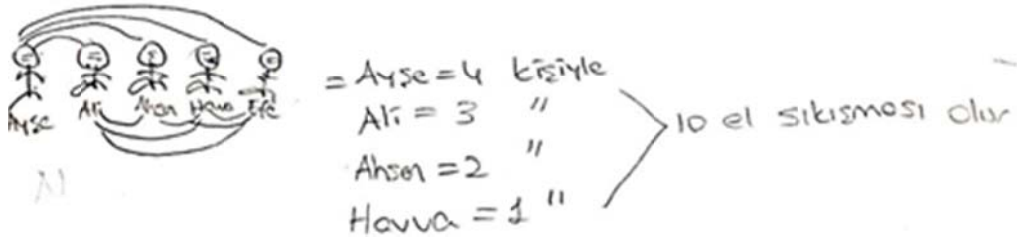 Ayşe Ali Ahsen Havva Efe
= Ayşe = 4 kişiyle
Ali = 3 "
Ahsen = 2 "
Havva = 1 "
10 el sıkışması olur